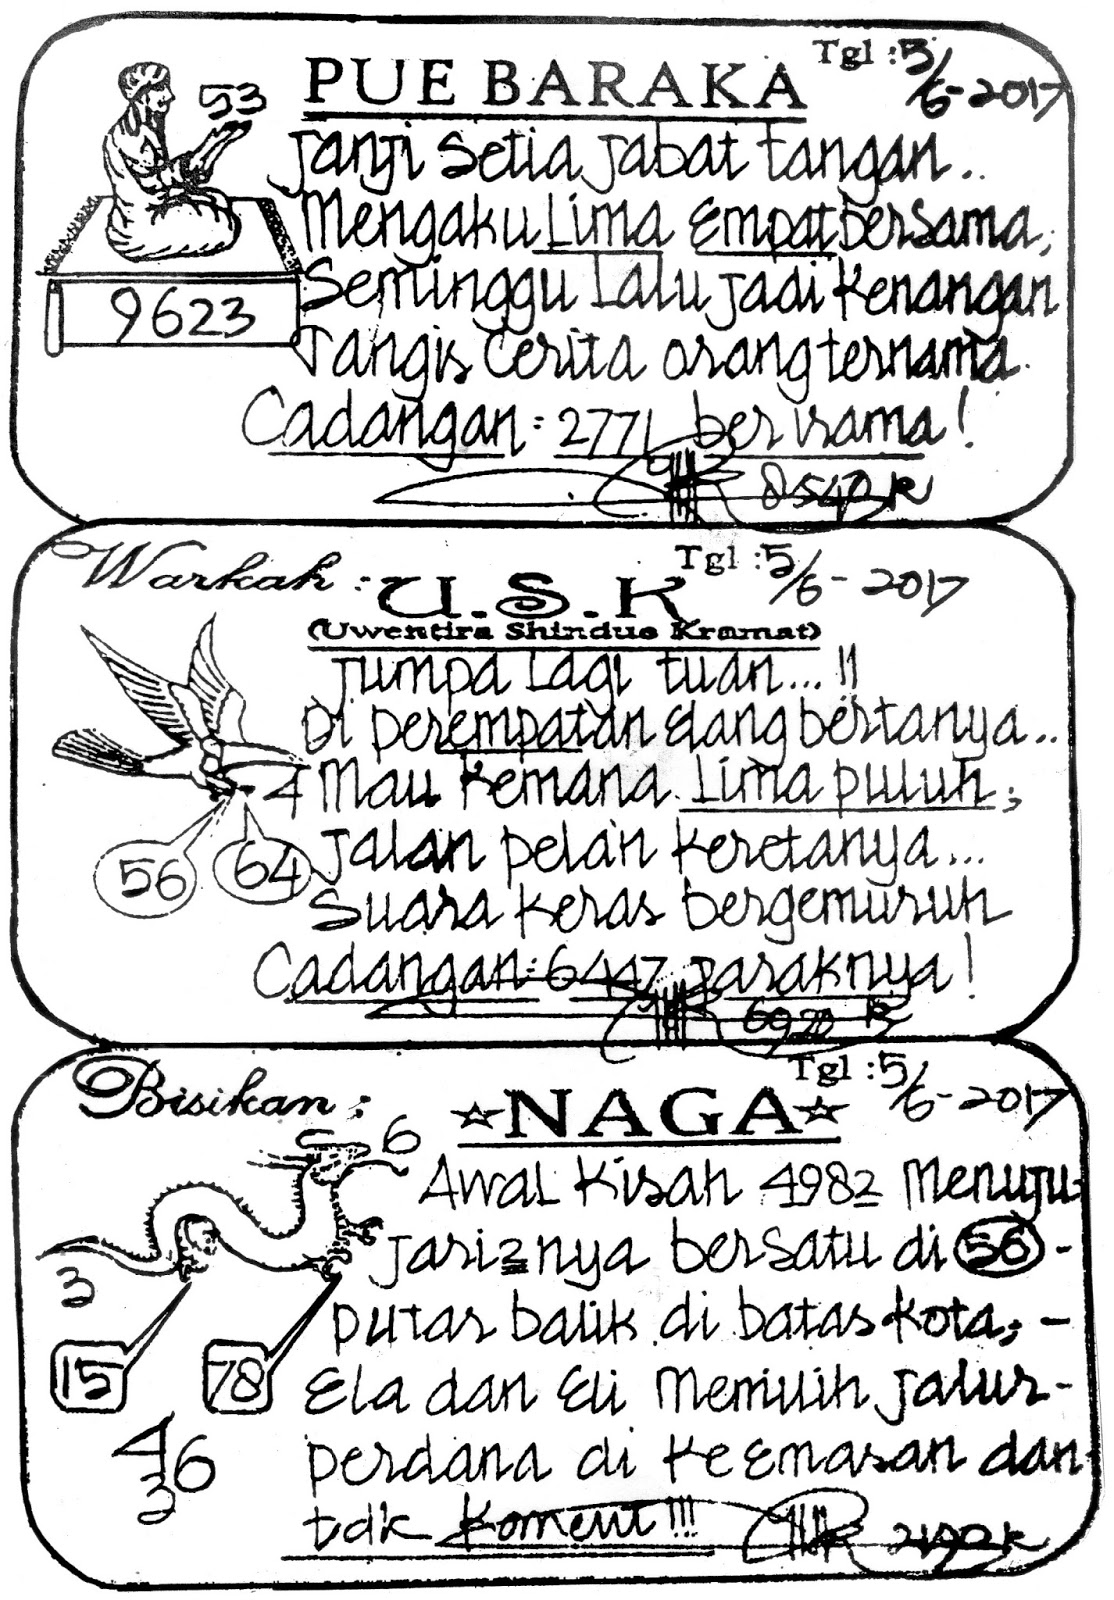 PUE BARAKA
Tgl : 5/6-2017
53
9623
Janji setia jabat tangan..
Mengaku Lima Empat bersama,
Seminggu Lalu jadi kenangan
Tangis Cerita orang ternama.
Cadangan : 2771 berirama!
8540 R
Warkah :
U.S.K
(Uwentira Shinduo Kramat)
Tgl : 5/6-2017
Jumpa Lagi tuan...!!
Di perempatan Elang bertanya..
4
Mau kemana Lima puluh;
56
64
Jalan pelan keretanya...
Suara keras bergemuruh
Cadangan : 6447 jaraknya!
6920 R
Bisikan :
☆NAGA☆
Tgl : 5/6-2017
6
3
15
78
4
36
Awal Kisah 4982 Menuju-
Jari2nya bersatu di 56 -
putar balik di batas kota; -
Ela dan Eli Memilih jalur-
perdana di keemasan dan
tdk Koment!!!
2190 R